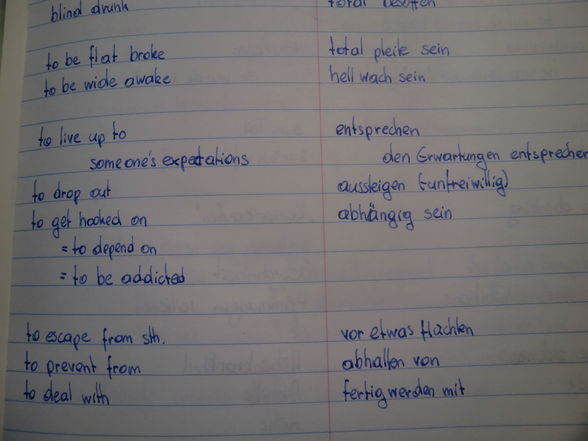 blind drunk total besoffen
to be flat broke total pleite sein
to be wide awake hell wach sein
to live up to entsprechen
someone's expectations den Erwartungen entsprechen
to drop out aussteigen (unfreiwillig)
to get hooked on abhängig sein
= to depend on
= to be addicted
to escape from sth. vor etwas flüchten
to prevent from abhalten von
to deal with fertig werden mit